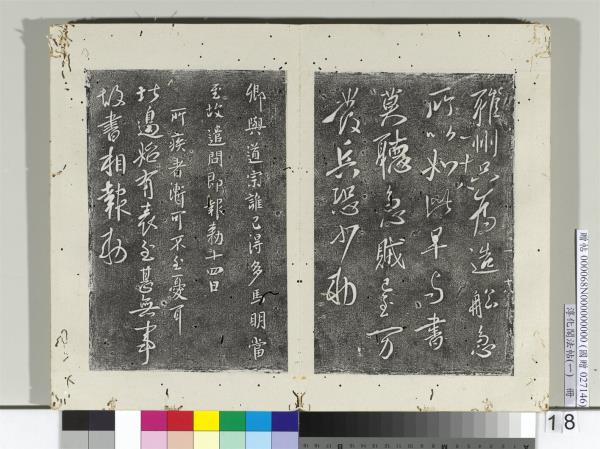 雅州只為造船急
所以如此早與書
莫聽急賊至
發兵恐少敕
卿與道宗誰已得多馬明當
至故遣問即報敕十四日
所疾者漸可不至憂耳
比邊始有表至甚無事
故書相報敕
贈帖 000068N000000000 (國贈 027146)
淳化閣法帖(一) 冊
18